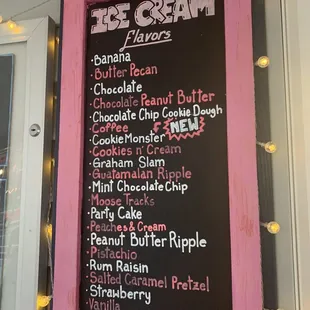 ICE CREAM
Flavors
· Banana
· Butter Pecan
· Chocolate
· Chocolate Peanut Butter
· Chocolate Chip Cookie Dough
· Coffee
· Cookie Monster NEW
· Cookies n' Cream
· Graham Slam
· Guatamalan Ripple
· Mint Chocolate Chip
· Moose Tracks
· Party Cake
· Peaches & Cream
· Peanut Butter Ripple
· Pistachio
· Rum Raisin
· Salted Caramel Pretzel
· Strawberry
· Vanilla